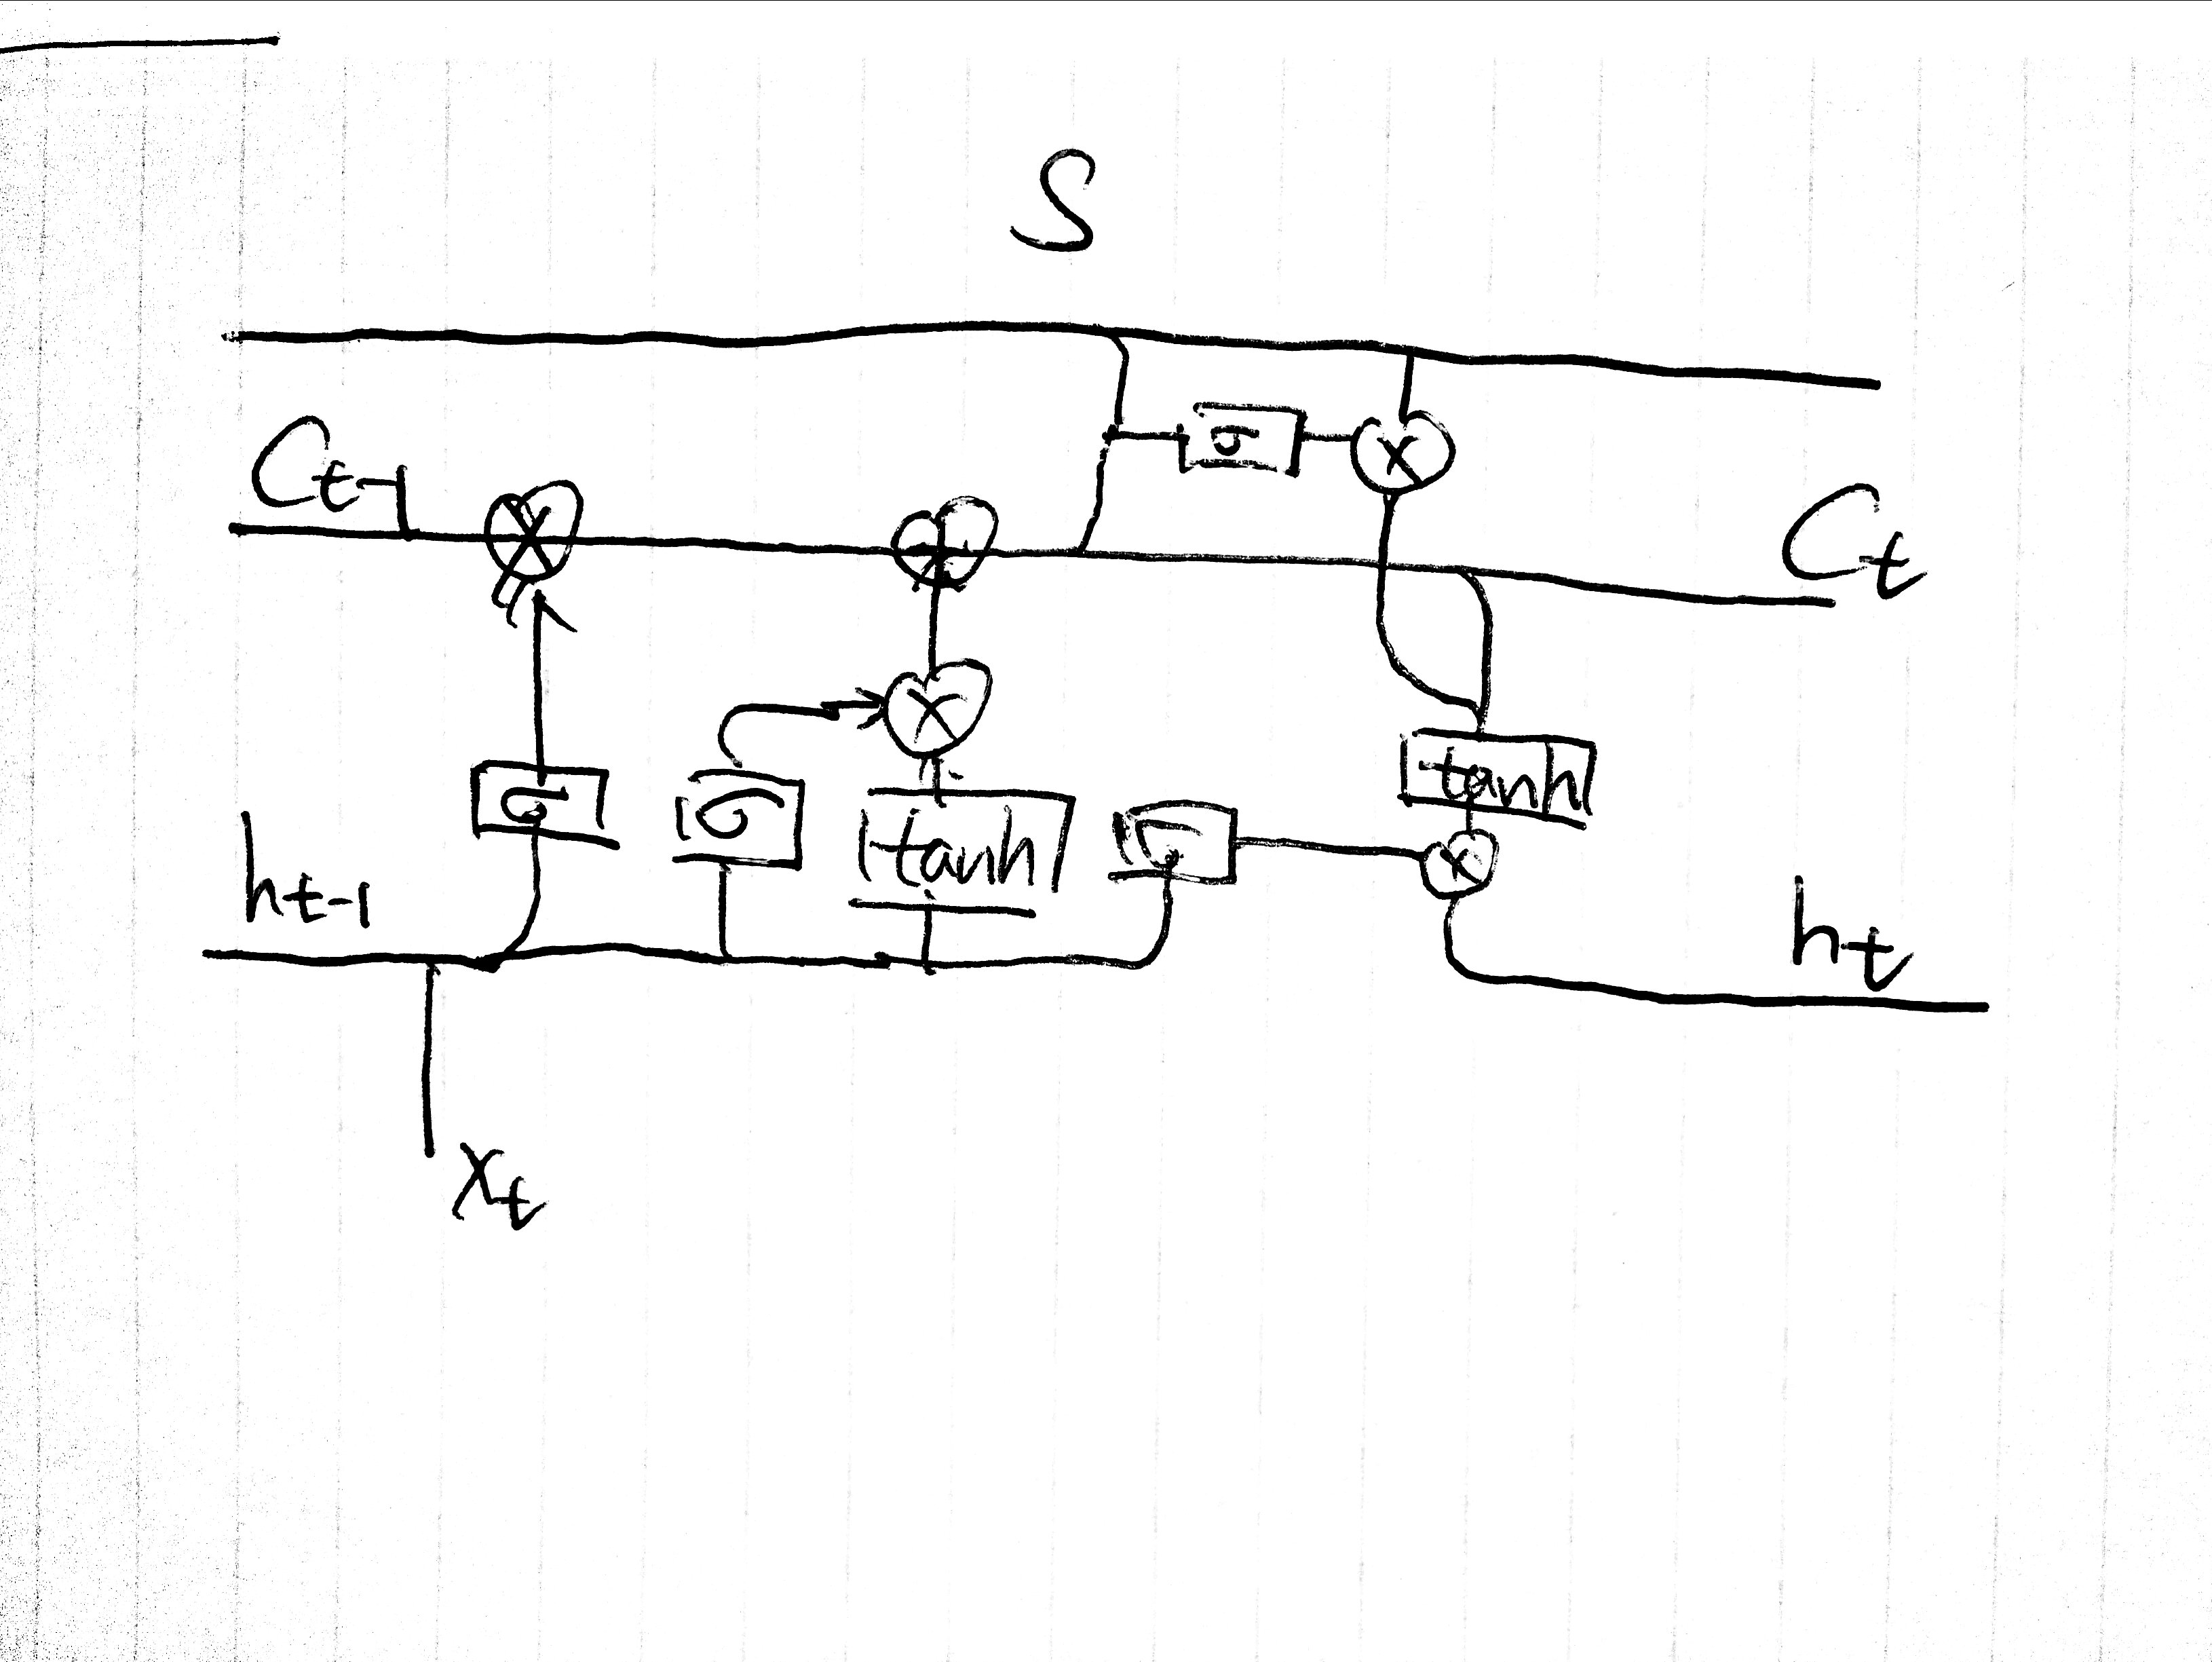 S
C_{t-1}
σ
⊗
C_t
⊗
⊕
⊗
σ
σ
tanh
σ
tanh
⊗
h_{t-1}
h_t
x_t